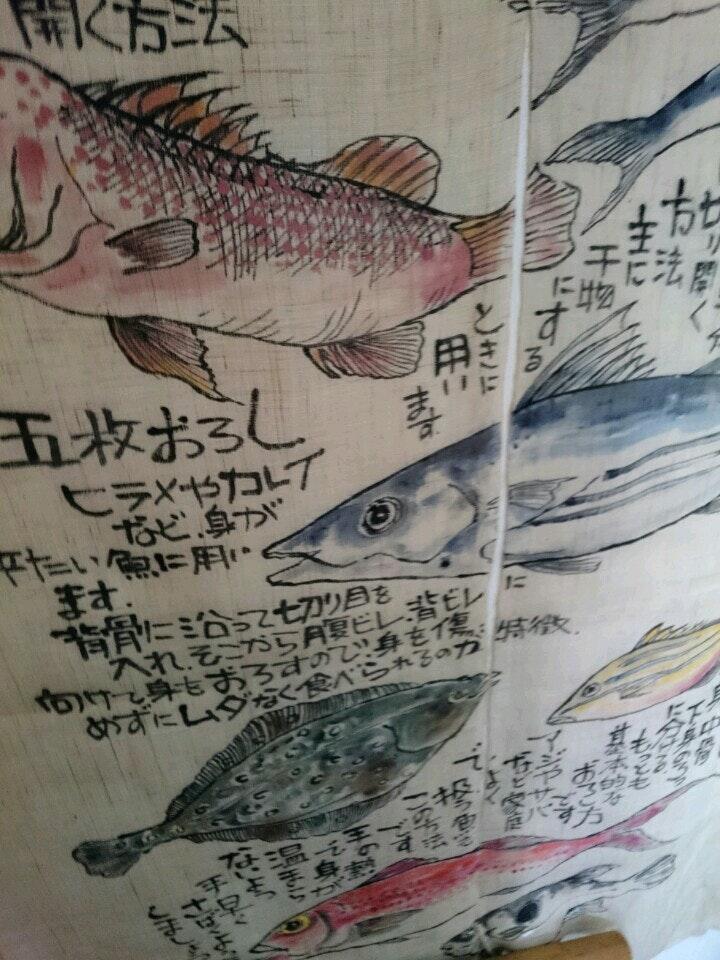 開く方法
切り開く
方法
主に
干物
にする
ときに
用い
ます
五枚おろし
ヒラメやカレイ
など、身が
平たい魚に用い
ます。
背骨に沿って切り目を
入れ、そこから腹ビレ、背ビレに
向けて身をおろすので、身を傷
めずにムダなく食べられるのが特徴。
身の
中骨
下身の
もっとも
基本的な
おろし方
です
アジやサバ
など家庭
でよく
扱う魚を
この方法
です
手の熱
で身が
温まら
ないよう
手早く
さばきよう
しましょう